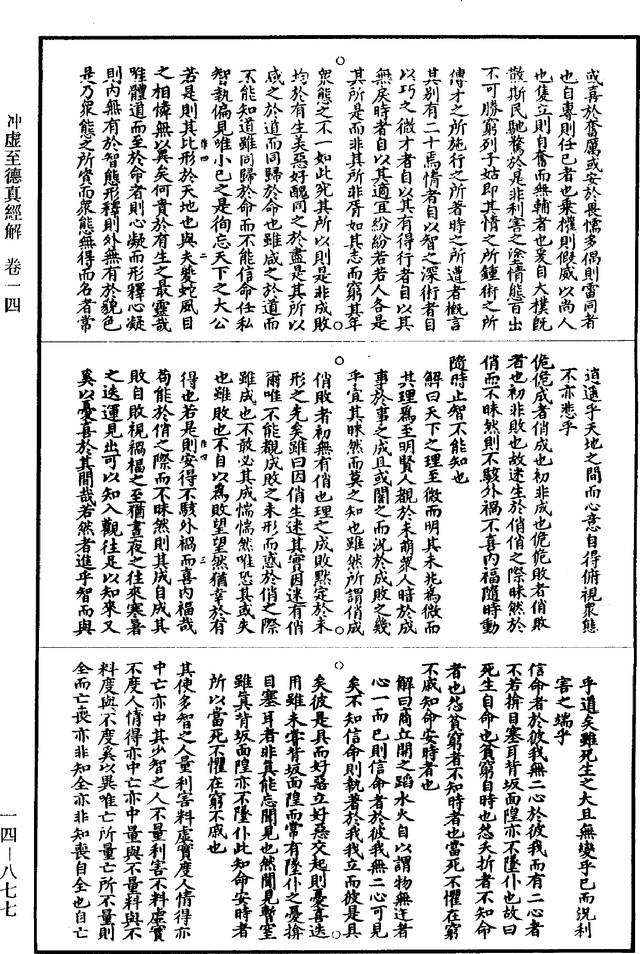 冲虚至德真經解 卷一四
一四—八七七
或喜於奮厲或安於畏懦多偶則雷同者
也自專則任已者也乘權則假威以尚人
也隻立則自奮而無輔者也爰自大樸既
散斯民馳騖於是非利害之塗情態百出
不可勝窮列子姑即其情之所鍾術之所
傳才之所施行之所著時之所遭者槪言
其別有二十焉情者自以智之深術者自
以巧之微才者自以其有得行者自以其
無戾時者自以其適宜紛紛若若人各是
其所是而非其所非胥如其志而窮其年
衆態之不一如此究其所以則是非成敗
均於有生美惡好醜同之於盡是其所以
咸之於道而同歸於命也雖咸之於道而
不能知道雖同歸於命而不能信命任私
智執偏見唯小已之是徇忘天下之大公
若是則其比形於天地也與夫夔蛇風目
之相憐無以異矣何貴於有生之最靈哉
唯體道而至於命者則心凝而形釋心凝
則內無有於智態形釋則外無有於貌色
是乃衆態之所賓而衆態無得而名者常
逍遥乎天地之間而心意自得俯視衆態
不亦悲乎
佹佹成者俏成也初非成也佹佹敗者俏敗
者也初非敗也故迷生於俏俏之際昧然於
俏而不昧然則不駭外禍不喜內福隨時動
隨時止智不能知也
解曰天下之理至微而明其未兆爲微而
其理爲至明賢人觀於未萌衆人暗於成
事於事之成且或闇之而況於成敗之幾
乎宜其昧然而莫之知也雖然所謂俏成
俏敗者初無有俏也理之成敗默定於未
形之先矣雖曰因俏生迷其實因迷有俏
爾唯不能觀成敗之未形而惑於俏之際
雖成也不敢必其成惴惴然唯恐其或失
也雖敗也不自以爲敗望望然猶幸於有
得也若是則安得不駭外禍而喜內福哉
苟能於俏之際而不昧然則其成自成其
敗自敗視禍福之至猶晝夜之往來寒暑
之迭運見出可以知入觀往足以知來又
奚以憂喜於其間哉若然者進乎智而與
乎道矣雖死生之大且無變乎已而況利
害之端乎
信命者於彼我無二心於彼我而有二心者
不若揜目塞耳背坂面隍亦不墜仆也故曰
死生自命也貧窮自時也怨夭折者不知命
者也怨貧窮者不知時者也當死不懼在窮
不戚知命安時者也
解曰商丘開之蹈水火自以謂物無迕者
心一而已則信命者於彼我無二心可見
矣不知信命則執著於我我立而彼是具
矣彼是具而好惡立好惡交起則憂喜迭
用雖未甞背坂面隍而常有墜仆之憂揜
目塞耳者非真能忘聞見也然聞見暫窒
雖真背坂面隍亦不墜仆此知命安時者
所以當死不懼在窮不戚也
其使多智之人量利害料虛實度人情得亦
中亡亦中其少智之人不量利害不料虛實
不度人情得亦中亡亦中量與不量料與不
料度與不度奚以異唯亡所量亡所不量則
全而亡喪亦非知全亦非知喪自全也自亡